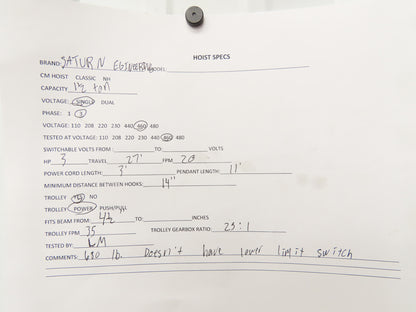 HOIST SPECS
BRAND: SATURN EGINEERING MODEL:
CM HOIST CLASSIC NH
CAPACITY 1½ ton
VOLTAGE: SINGLE DUAL
PHASE: 1 3
VOLTAGE: 110 208 220 230 440 460 480
TESTED AT VOLTAGE: 110 208 220 230 440 460 480
SWITCHABLE VOLTS FROM: TO: VOLTS
HP 3 TRAVEL 27' FPM 20
POWER CORD LENGTH: 3' PENDANT LENGTH: 11'
MINIMUM DISTANCE BETWEEN HOOKS: 14"
TROLLEY YES NO
TROLLEY POWER PUSH/PULL
FITS BEAM FROM 4½ TO: INCHES
TROLLEY FPM 35 TROLLEY GEARBOX RATIO: 23:1
TESTED BY: LM
COMMENTS: 680 lb. Doesn't have lower limit switch